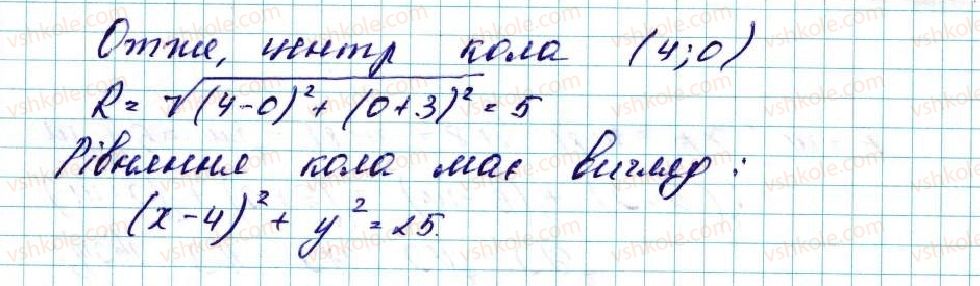 Отже, центр кола (4;0)
R = √(4-0)² + (0+3)² = 5
Рівняння кола має вигляд:
(x-4)² + y² = 25.